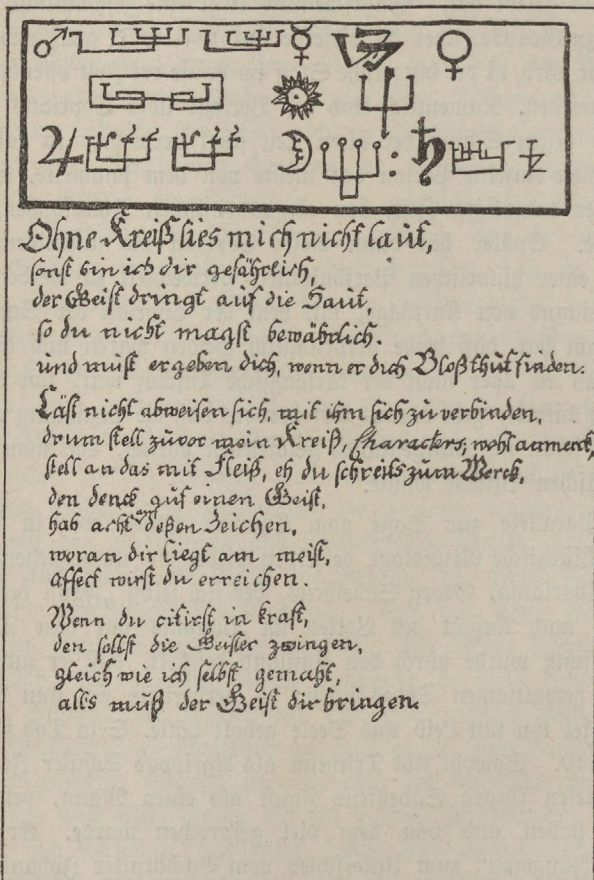 ♂ ☿ ♀
♃ ☽ : ♄
Ohne Kreiß lies mich nicht laut,
sonst bin ich dir gefährlich,
der Geist dringt auf die Haut,
so du nicht magst bewährlich.
und must ergeben dich, wenn er dich Bloß thut finden.
Läst nicht abweisen sich, mit ihm sich zu verbinden,
drum stell zuvor mein Kreiß, Characters, wohl anmerck,
stell an das mit Fleiß, eh du schreits zum Werck,
den denck auf einen Geist,
hab acht deßen Zeichen,
woran dir liegt am meist,
affect wirst du erreichen.
Wenn du citirst in kraft,
den sollst die Geister zwingen,
gleich wie ich selbst gemaht,
alls muß der Geist dir bringen.